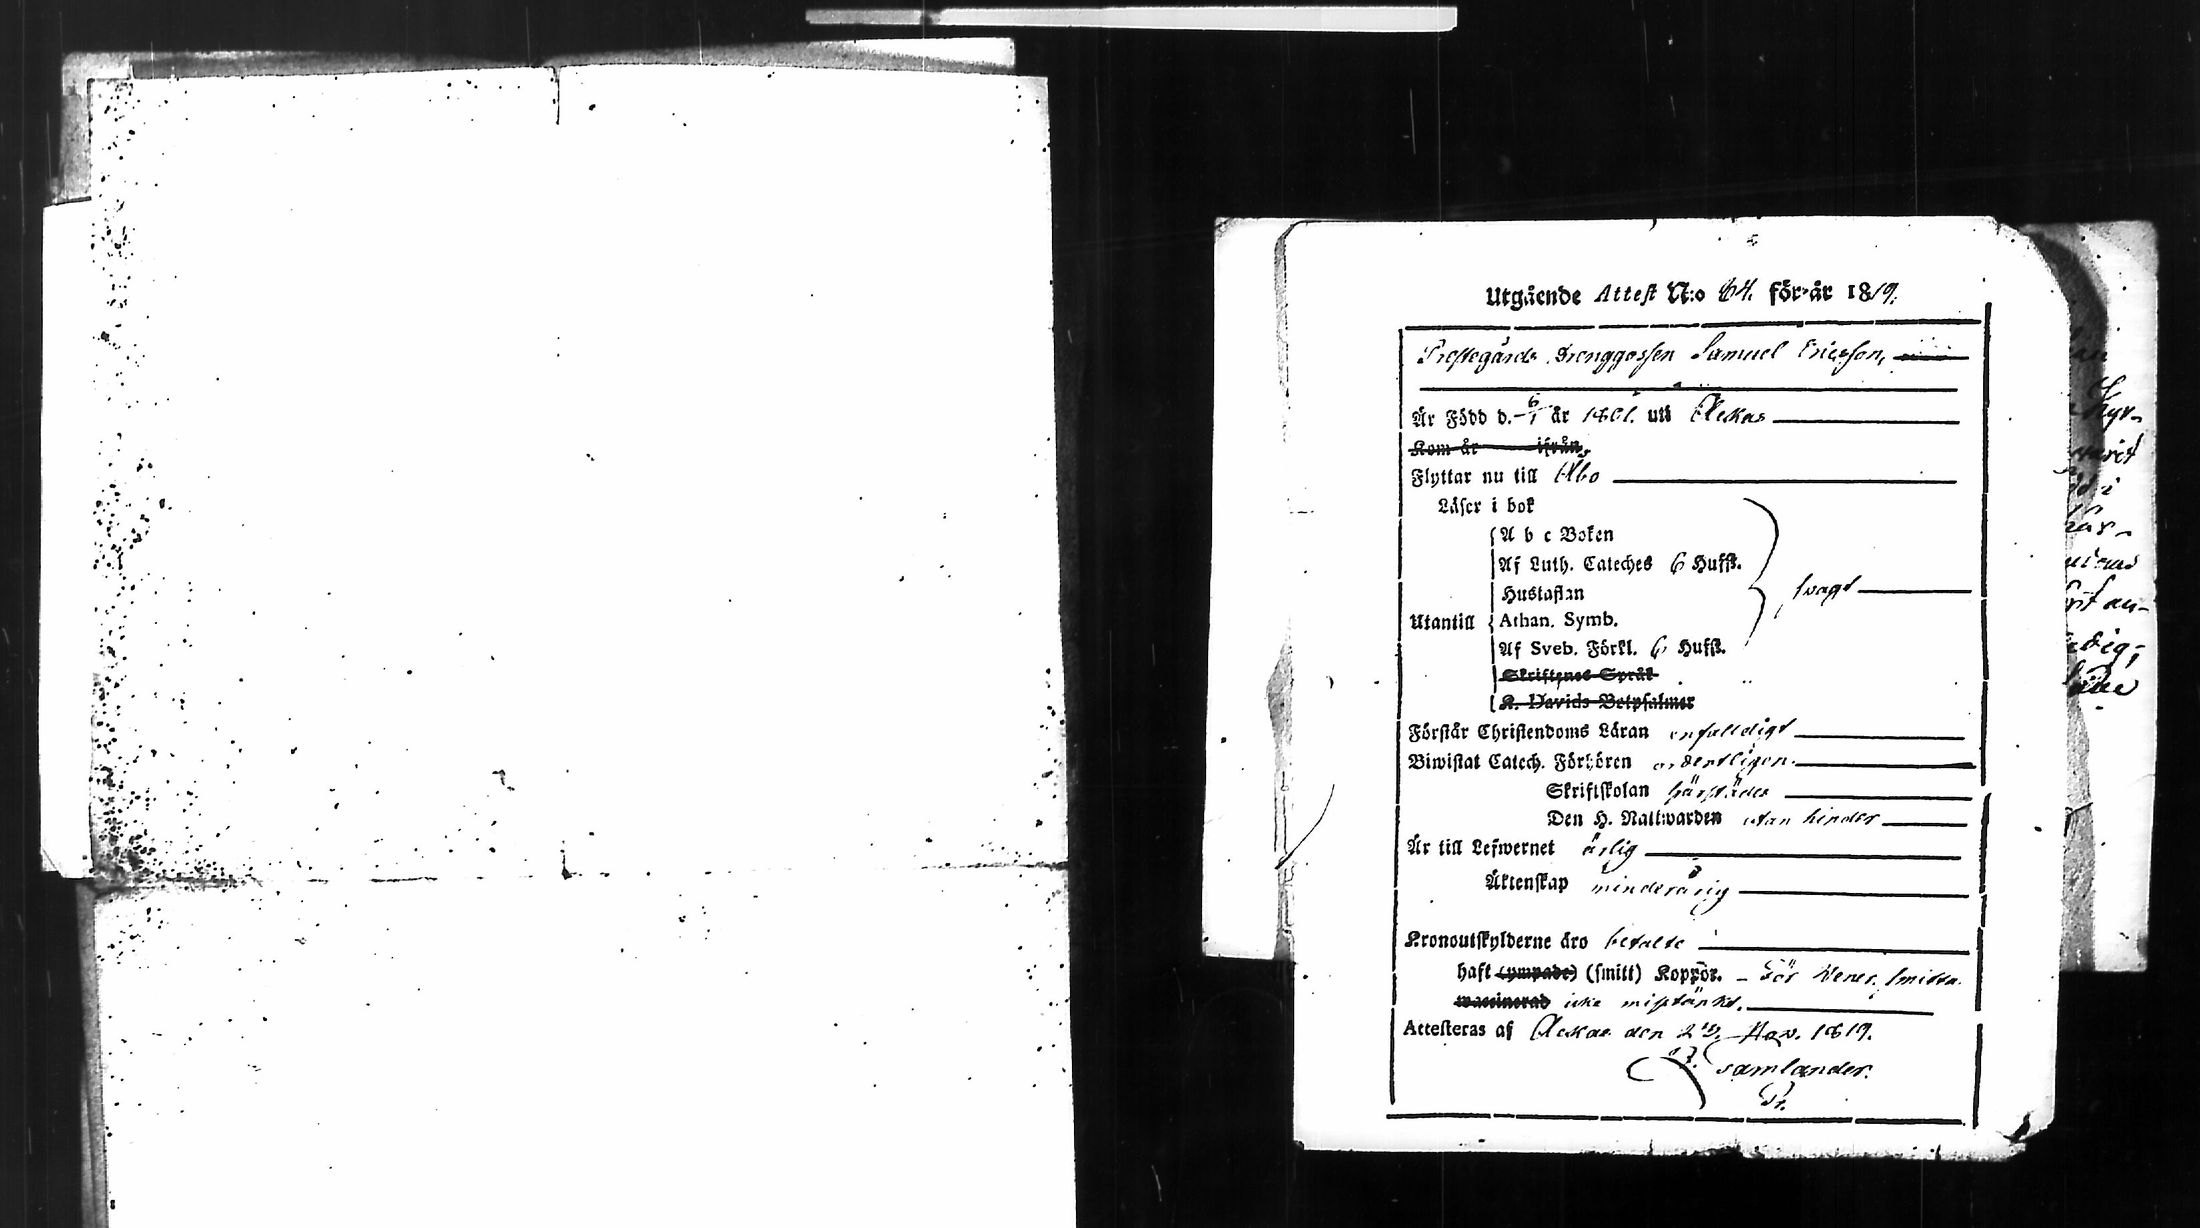 Utgående Attest N:o 64. för år 1819.
Prestegårds Drenggossen Samuel Ericsson,
Är Född d. 6/1 år 1801. uti Ackas
Kom år ifrån
Flyttar nu till Åbo
Läser i bok
A b c Boken
Af Luth. Cateches 6 Hufst.
Hustaflan
svagt
Utantill Athan. Symb.
Af Sveb. Förkl. 6 Hufst.
Skriftenes Språk
K. Davids Botpsalmer
Förstår Christendoms Läran enfalldigt
Biwistat Catech. Förhören ordentligen.
Skriftskolan härstädes
Den H. Nattwarden utan hinder
Är till Lefwernet ärlig
Äktenskap minderårig
Kronoutskylderne äro betalte
haft (ympade) (smitt) Koppor. - För Vener. smitta
waccinerad icke misstänkt.
Attesteras af Ackas den 2 Nov. 1819.
Samlander.